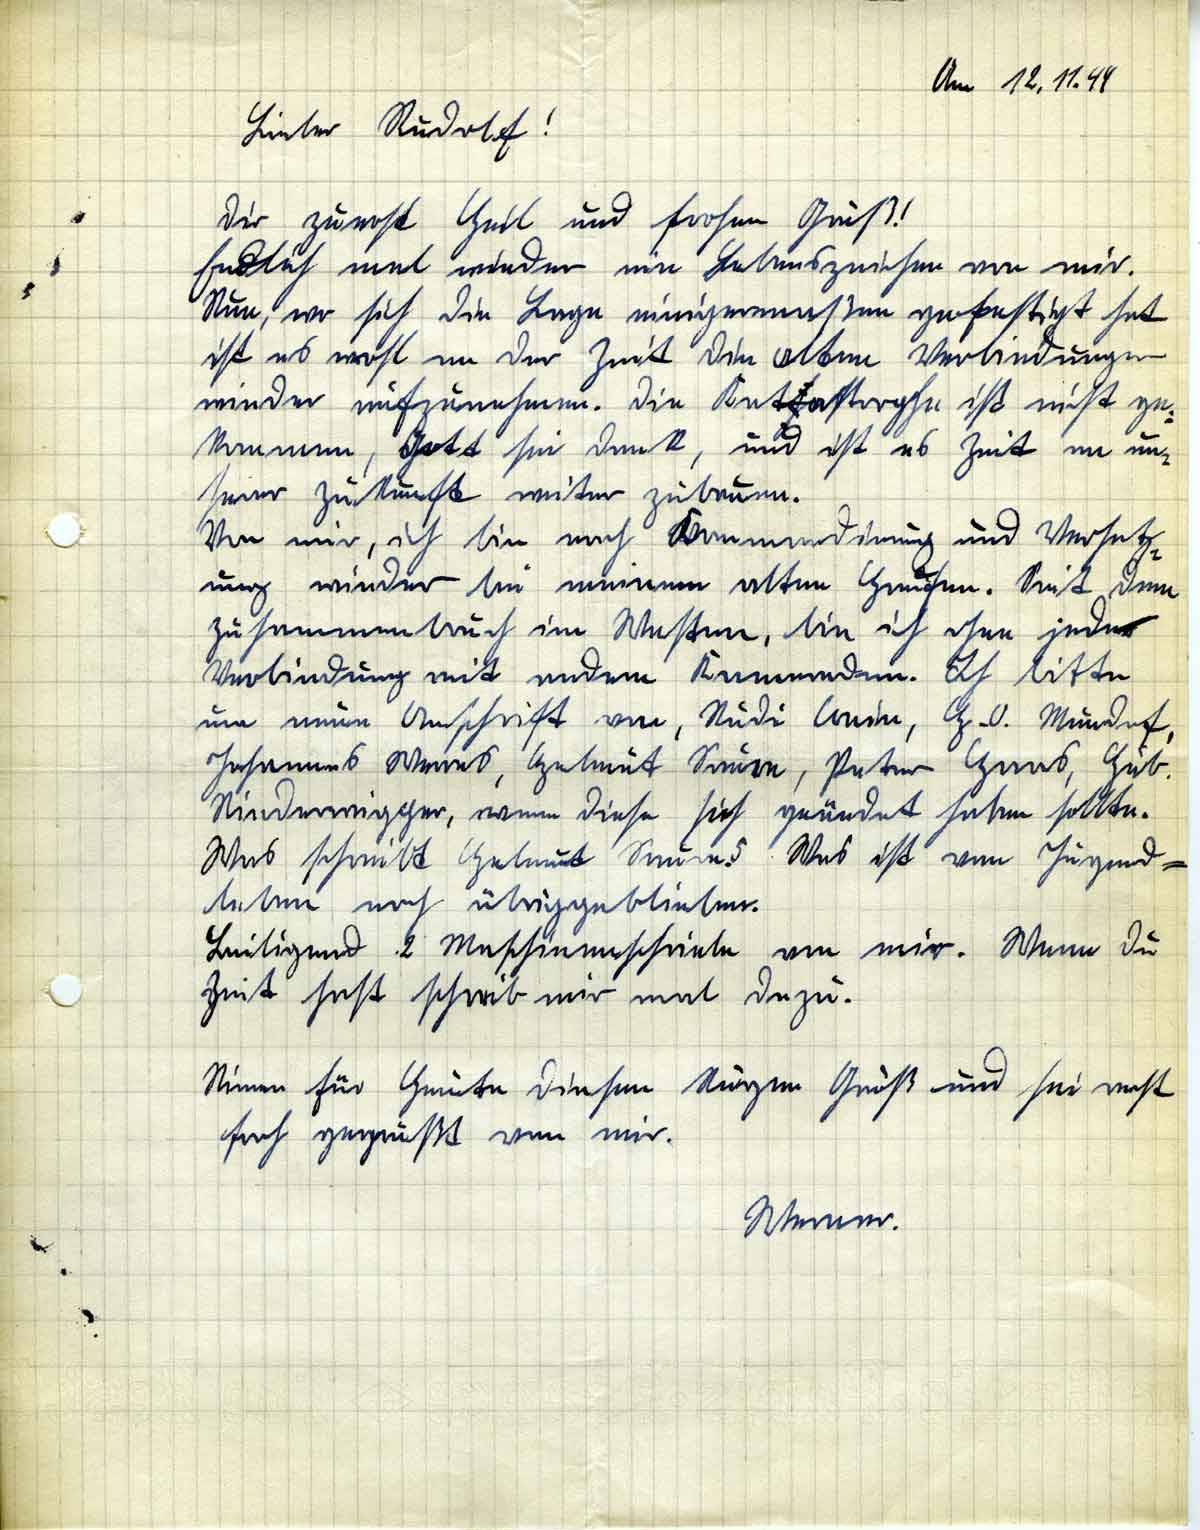 Am 12.11.44
Lieber Rudolf!
Dir zuerst Heil und frohen Gruß!
Endlich mal wieder ein Lebenszeichen von mir.
Nun, wo sich die Lage einigermaßen gefestigt hat
ist es wohl an der Zeit die alten Verbindungen
wieder aufzunehmen. Die Katastrophe ist nicht ge-
kommen, Gott sei dank, und ist es Zeit an un-
serer Zukunft weiter zubauen.
Von mir, ich bin nach Kommandierung und Versetz-
ung wieder bei meinem alten Haufen. Seit dem
Zusammenbruch im Westen, bin ich ohne jeder
Verbindung mit andern Kameraden. Ich bitte
um neue Anschrift von, Rudi, H.O. Mundorf,
Johannes, Helmut, Peter Haas, Hub.
wenn diese sich geändet haben sollte.
Was schreibt Helmut. Was ist vom Jugend-
leben noch übriggeblieben.
Beiligend 2 Maschinenschriebe von mir. Wenn Du
Zeit hast schreib mir mal dazu.
Nimm für Heute diesen kurzen Gruß und sei recht
froh gegrüßt von mir.
Werner.